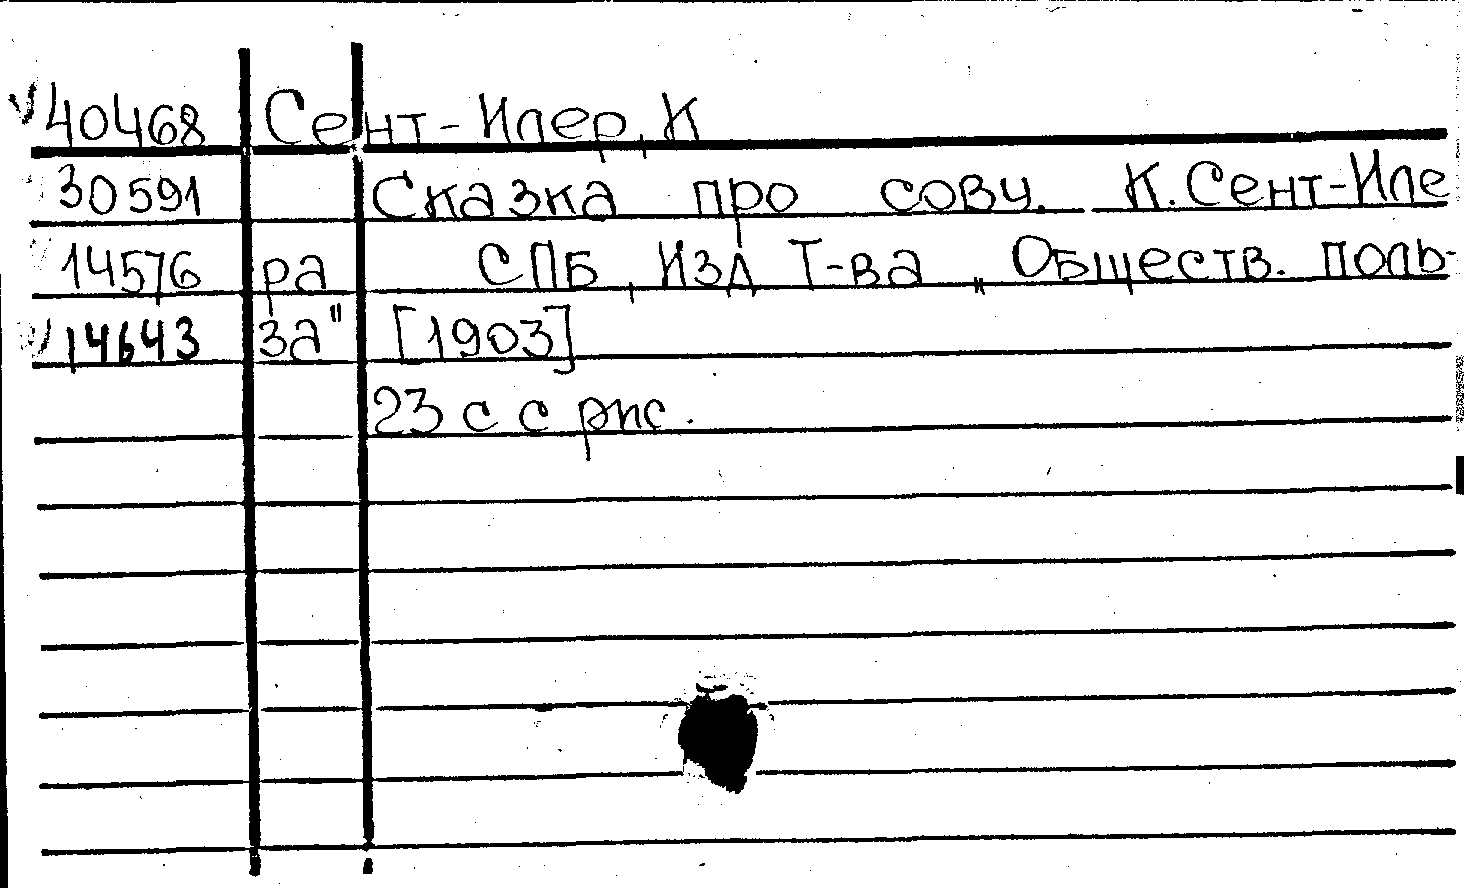 V 40468 Сент-Илер, К
30591 Сказка про сову. К. Сент-Иле
14576 ра СПБ, Изд Т-ва „Обществ. поль-
V 14643 за" [1903]
23 с с рис.